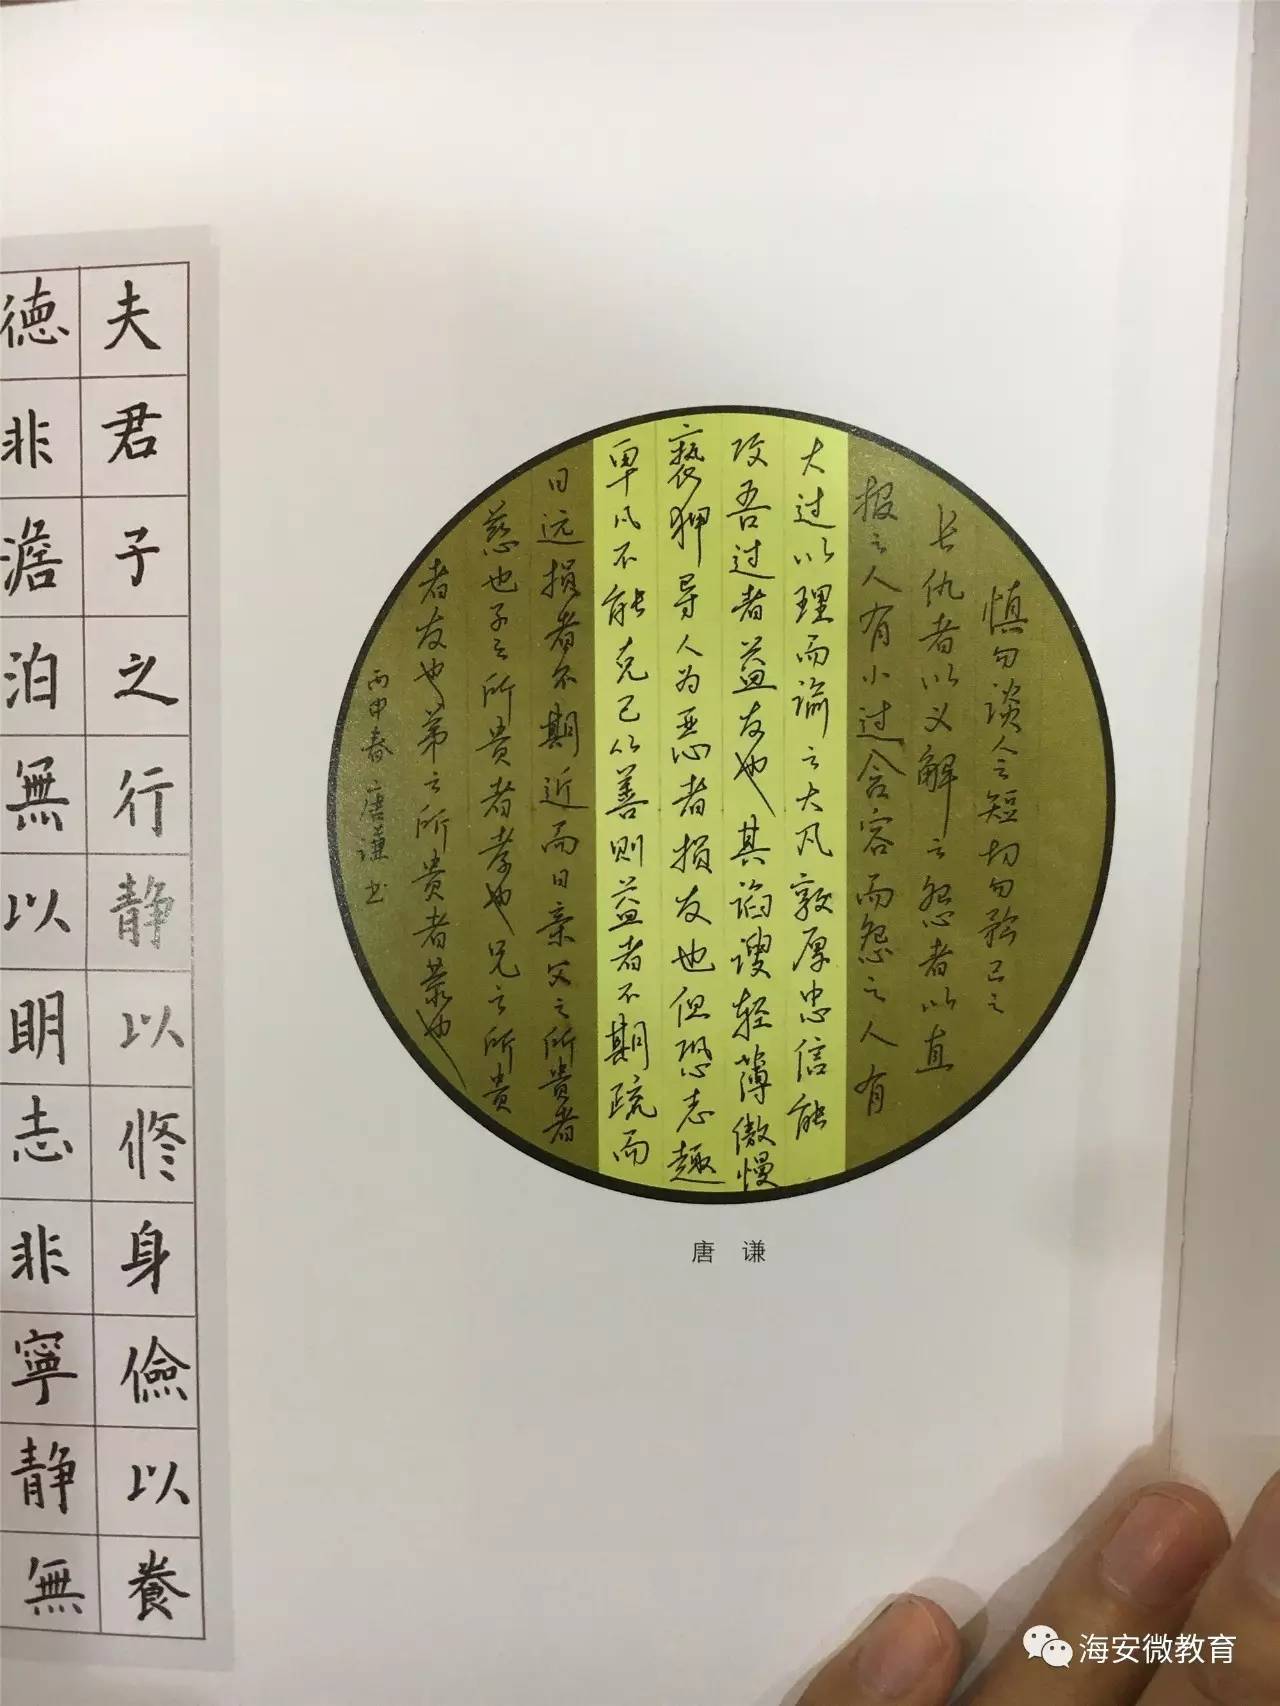 慎勿谈人之短切勿矜己之
长仇者以义解之怨者以直
报之人有小过含容而怨之人有
大过以理而谕之大凡敦厚忠信能
攻吾过者益友也其谄谀轻薄傲慢
亵狎导人为恶者损友也但恐志趣
卑凡不能克己从善则益者不期疏而
日远损者不期近而日亲父之所贵者
慈也子之所贵者孝也兄之所贵
者友也弟之所贵者恭也
丙申春唐谦书
唐谦
夫君子之行静以修身儉以養
德非澹泊無以明志非寧静無
海安微教育